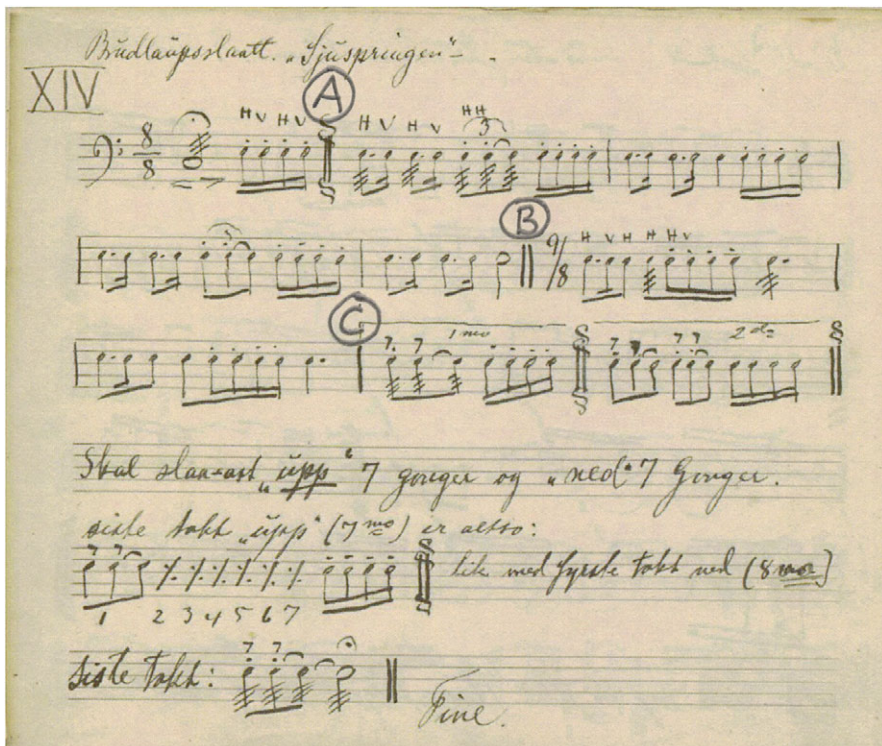 Brudlaupsslaatt. „Sjuspringen“
XIV
A
8/8 H V H V H V H V H H 3
B
3 9/8 H V H H H V
C
7 7 1mo 7 7 7 7 2do
Skal slaaast „upp“ 7 gonger og „ned“ 7 Gonger.
siste takt „upp“ (7mo) er altso:
7 7 lik med fyrste takt ned (8vo)
1 2 3 4 5 6 7
siste takt: 7 7
Fine.